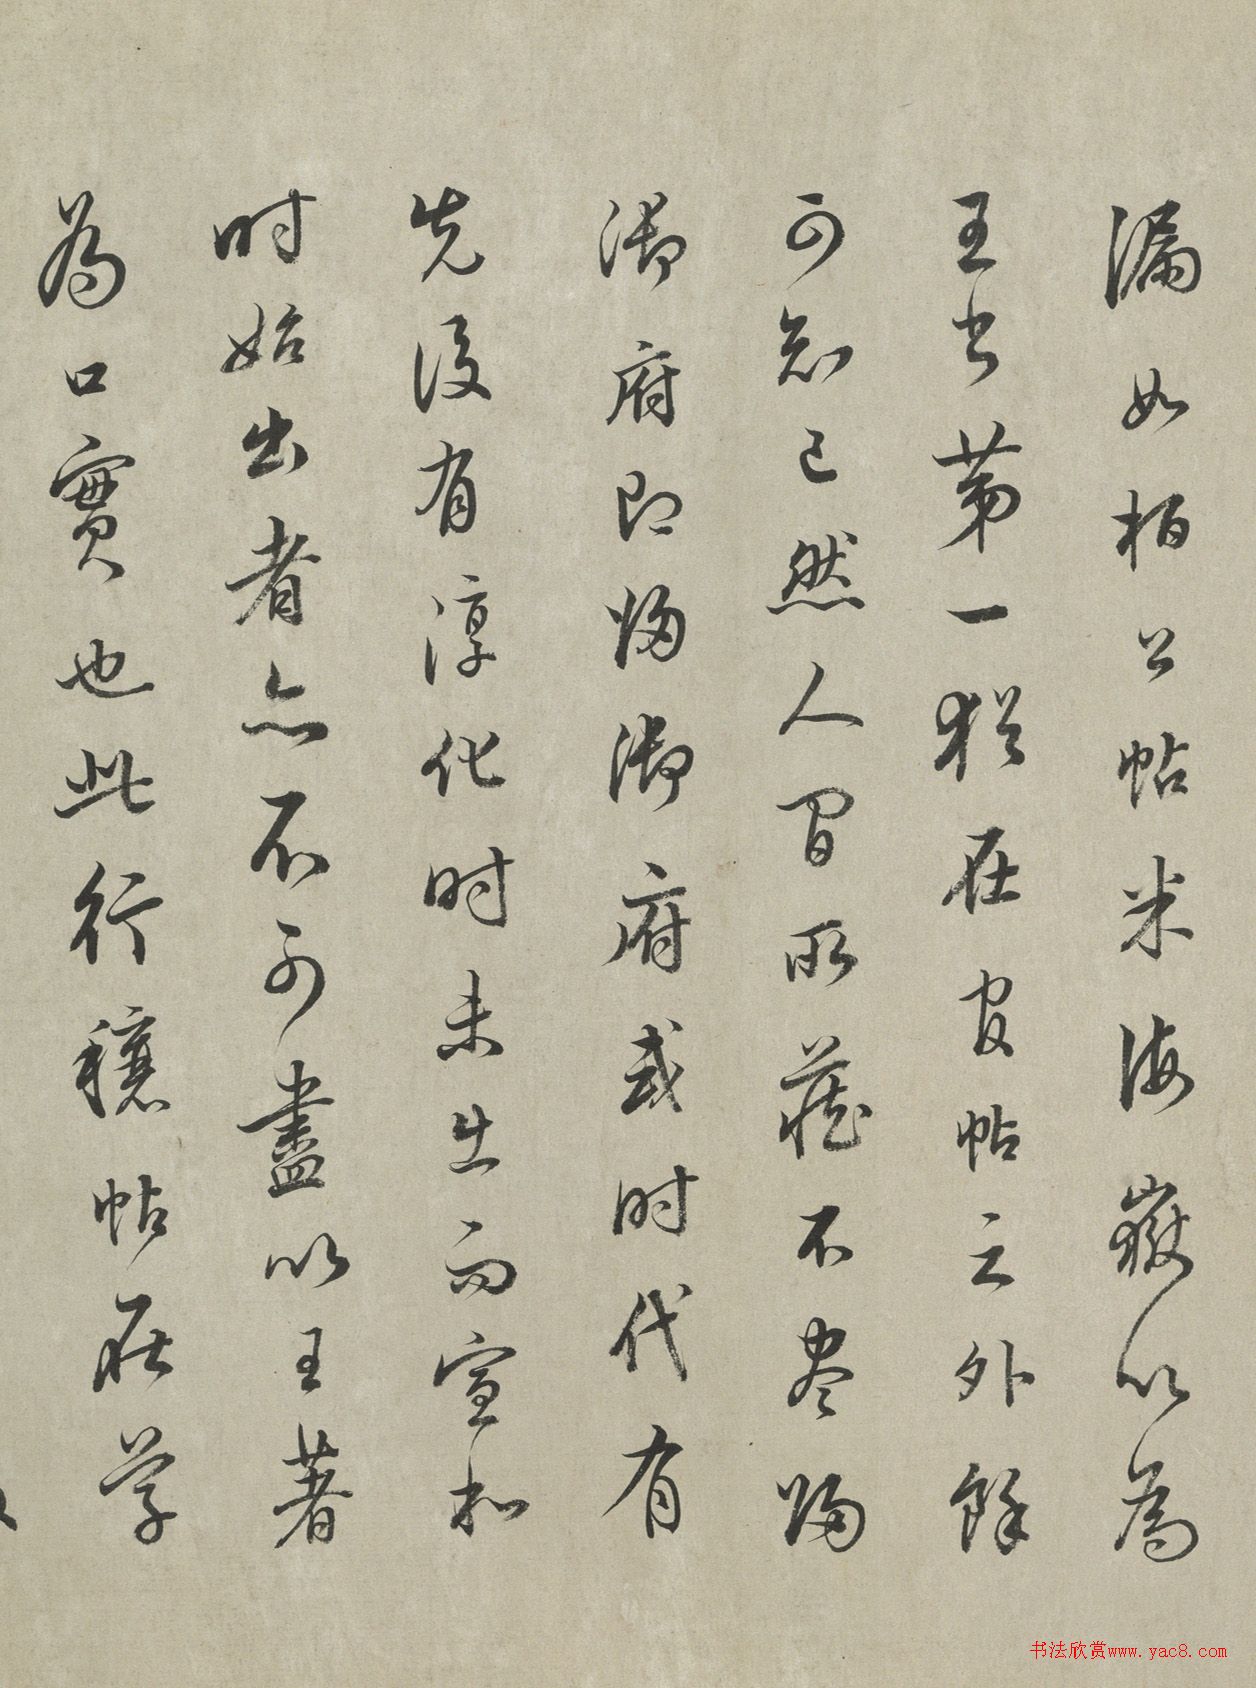 漏如柏公帖米海嶽以為
王書第一猶在官帖之外餘
可知已然人間所藏不盡歸
御府即歸御府或時代有
先後有淳化時未出而宣和
時始出者亦不可盡以王著
為口實也此行穰帖在學
书法欣赏www.yac8.com